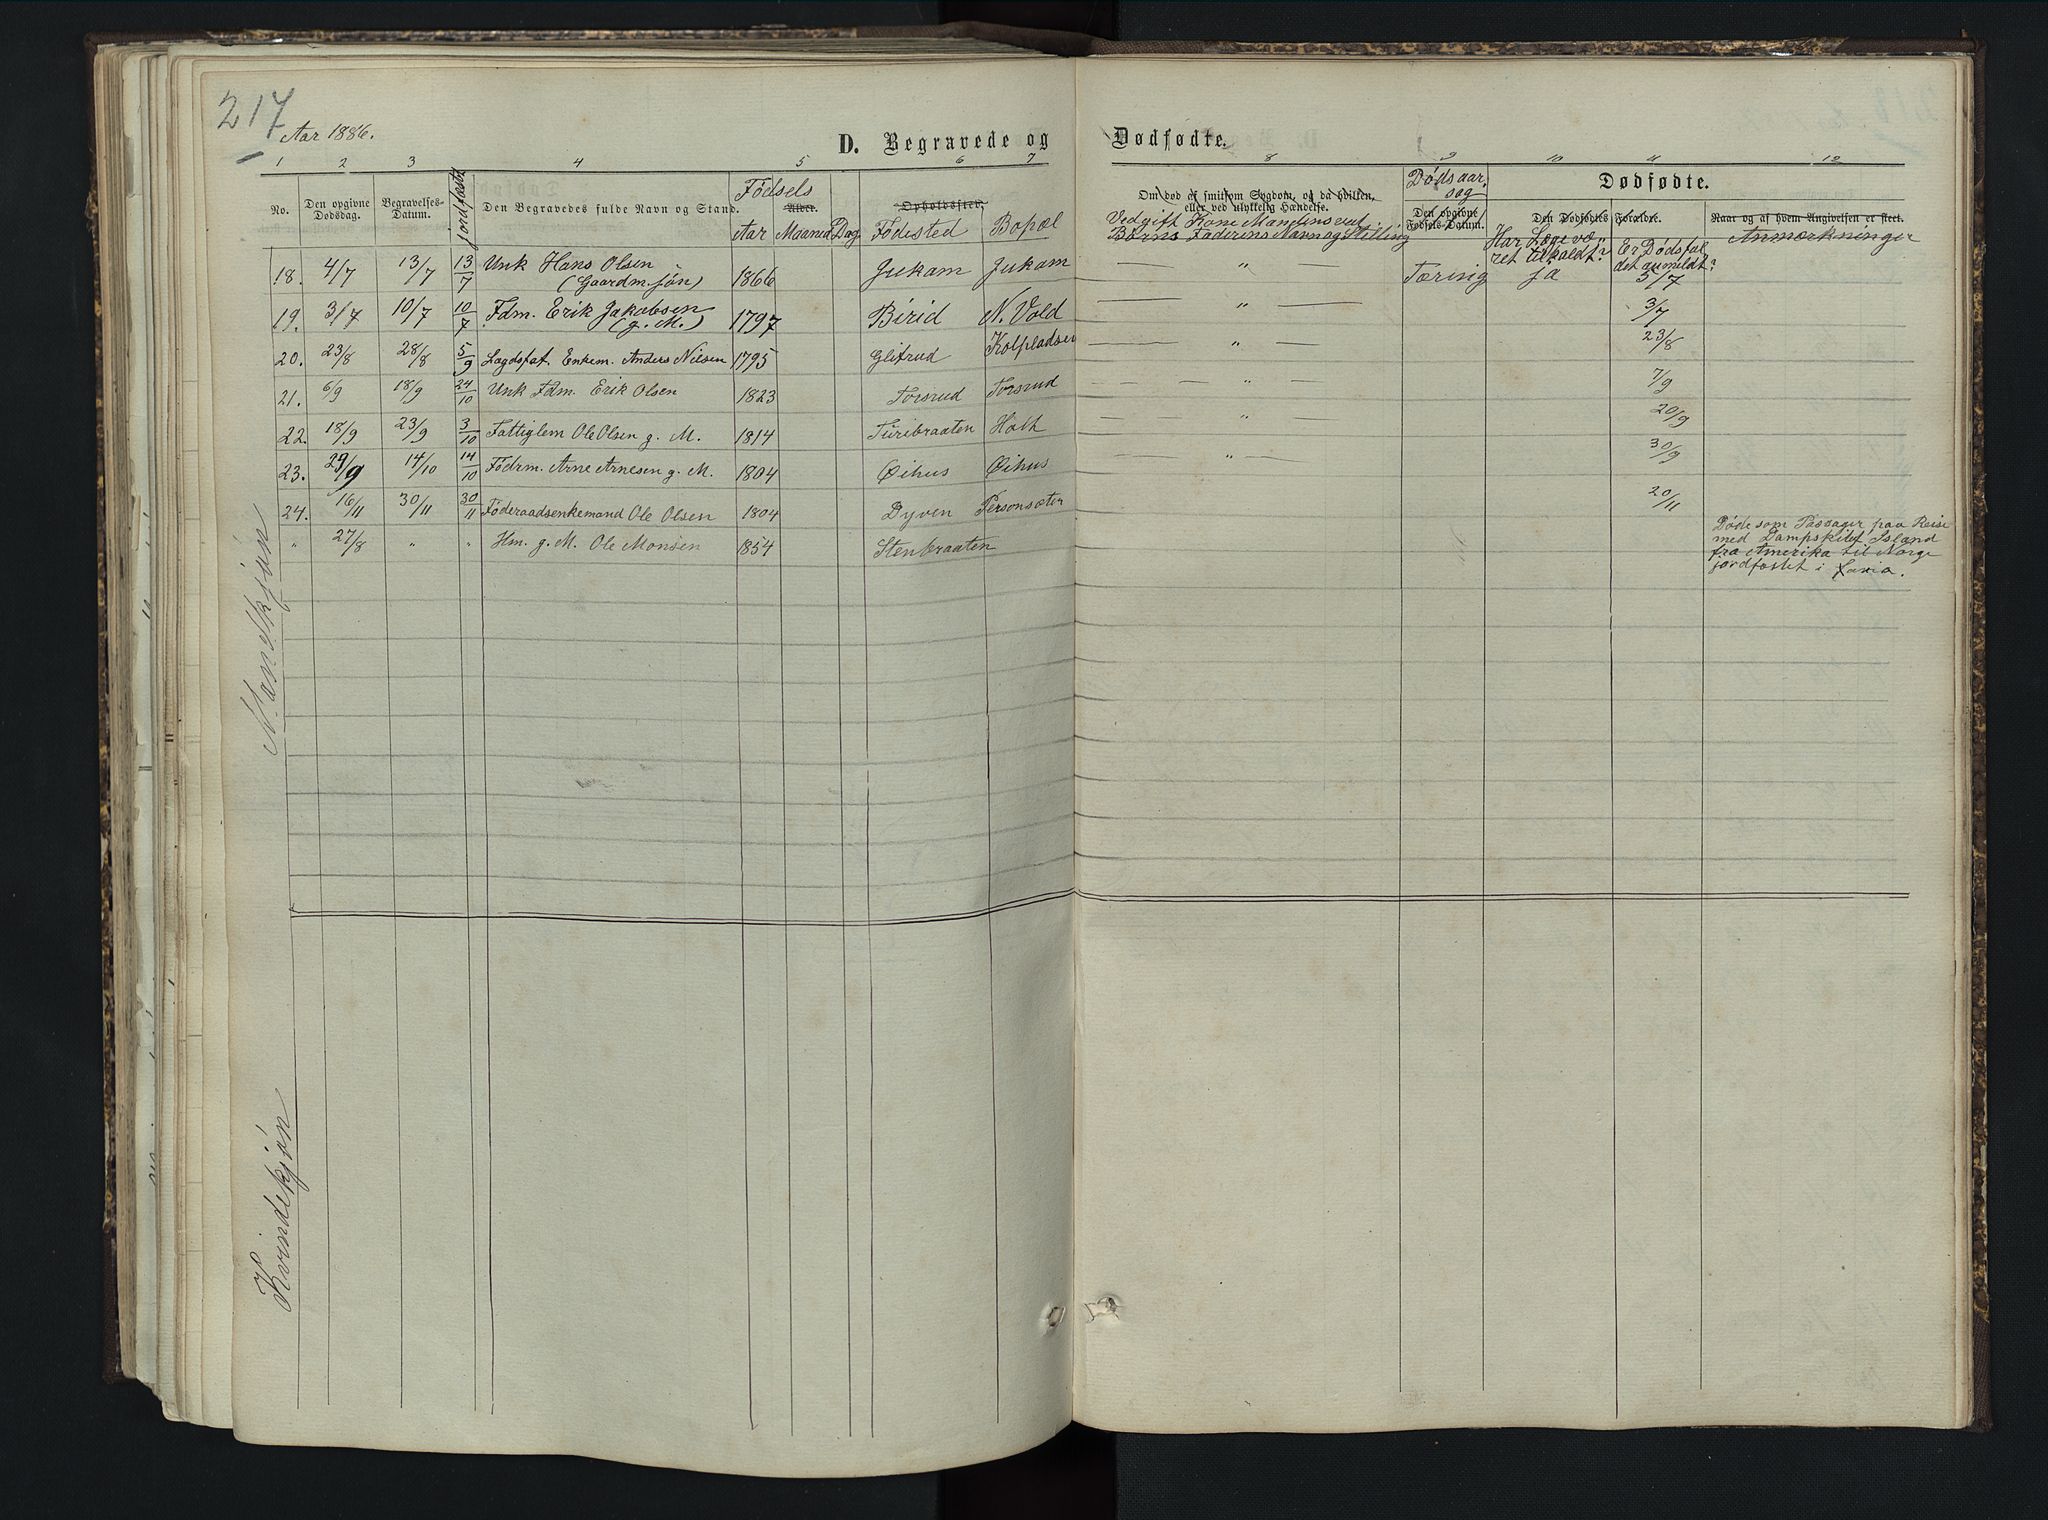 217
Aar 1886.
D. Begravede og Dødfødte.
1 2 3 4 5 6 7 8 9 10 11 12
No. Den opgivne Dødsdag. Begravelses-Datum. Jordfæstet Den Begravedes fulde Navn og Stand. Fødsels Alder. Aar Maaned Dag Opholdssted. Fødested Bopæl
Om død af smitsom Sygdom, og da hvilken, eller ved ulykkelig Hændelse.
Vedgift Kone Mandens eut
Børns Faderens Navn og Stilling
Dødsaarsag
Den opgivne Fødsels-Datum.
Dødfødte.
Den Dødfødtes Forældre.
Har Læge været tilkaldt? Er Dødsfaldet anmeldt?
Naar og af hvem Angivelsen er skeet.
Anmærkninger
18. 4/7 13/7 13/7 Unk Hans Olsen (Gaardm. søn) 1866 Jukam Jukam — " — Tæring ja 5/7
19. 3/7 10/7 10/7 Fdm. Erik Jakobsen (g. M.) 1797 Birid N. Vold — " — 3/7
20. 23/8 28/8 5/9 Lagdsfat. Enkem. Anders Nilsen 1795 Glitrud Kolpladsen — " — 23/8
21. 6/9 18/9 24/10 Unk Fdm. Erik Olsen 1823 Torsrud Torsrud — — " — 7/9
22. 18/9 23/9 3/10 Fattiglem Ole Olsen g. M. 1814 Turibraaten Hoth — " — 20/9
23. 29/9 14/10 14/10 Fødrm. Arne Arnesen g. M. 1804 Øihus Øihus — " — 30/9
24. 16/11 30/11 30/11 Føderaadsenkemand Ole Olsen 1804 Dyven Personsæter 20/11
" 27/8 " " Hm. g. M. Ole Monsen 1854 Stenbraaten
Døde som Passager paa Reise
med Dampskibet Island
fra Amerika til Norge
jordfæstet i
Mandkjøn
Kvindekjøn